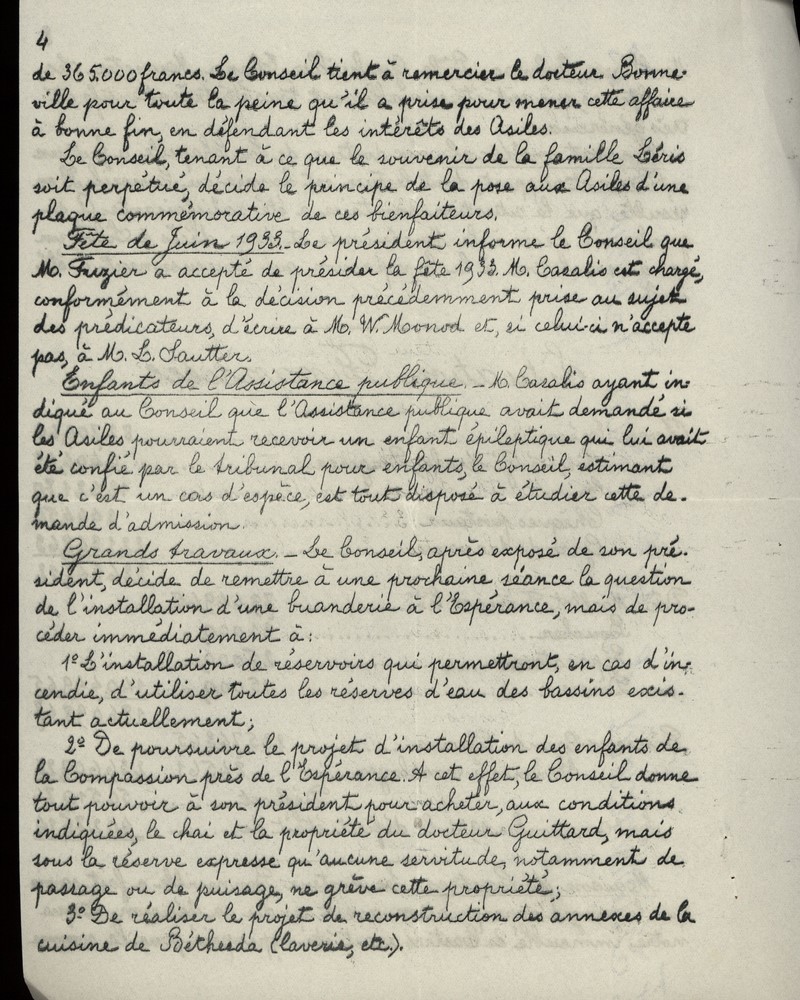 4
de 365.000 francs. Le Conseil tient à remercier le docteur Bonne-
ville pour toute la peine qu'il a prise pour mener cette affaire
à bonne fin, en défendant les intérêts des Asiles.
Le Conseil, tenant à ce que le souvenir de la famille Léris
soit perpétué, décide le principe de la pose aux Asiles d'une
plaque commémorative de ces bienfaiteurs.
Fête de Juin 1933.- Le président informe le Conseil que
M. Frizier a accepté de présider la fête 1933. M. Casalis est chargé,
conformément à la décision précédemment prise au sujet
des prédicateurs, d'écrire à M. W. Monod et, si celui-ci n'accepte
pas, à M. L. Sautter.
Enfants de l'Assistance publique. - M. Casalis ayant in-
diqué au Conseil que l'Assistance publique avait demandé si
les Asiles pourraient recevoir un enfant épileptique qui lui avait
été confié par le tribunal pour enfants, le Conseil, estimant
que c'est un cas d'espèce, est tout disposé à étudier cette de-
mande d'admission.
Grands travaux. - Le Conseil, après exposé de son pré-
sident, décide de remettre à une prochaine séance la question
de l'installation d'une buanderie à l'Espérance, mais de pro-
céder immédiatement à:
1º L'installation de réservoirs qui permettront, en cas d'in-
cendie, d'utiliser toutes les réserves d'eau des bassins exis-
tant actuellement;
2º De poursuivre le projet d'installation des enfants de
la Compassion près de l'Espérance. A cet effet, le Conseil donne
tout pouvoir à son président pour acheter, aux conditions
indiquées, le chai et la propriété du docteur Guittard, mais
sous la réserve expresse qu'aucune servitude, notamment de
passage ou de puisage, ne grève cette propriété;
3º De réaliser le projet de reconstruction des annexes de la
cuisine de Béthesda (laverie, etc.).